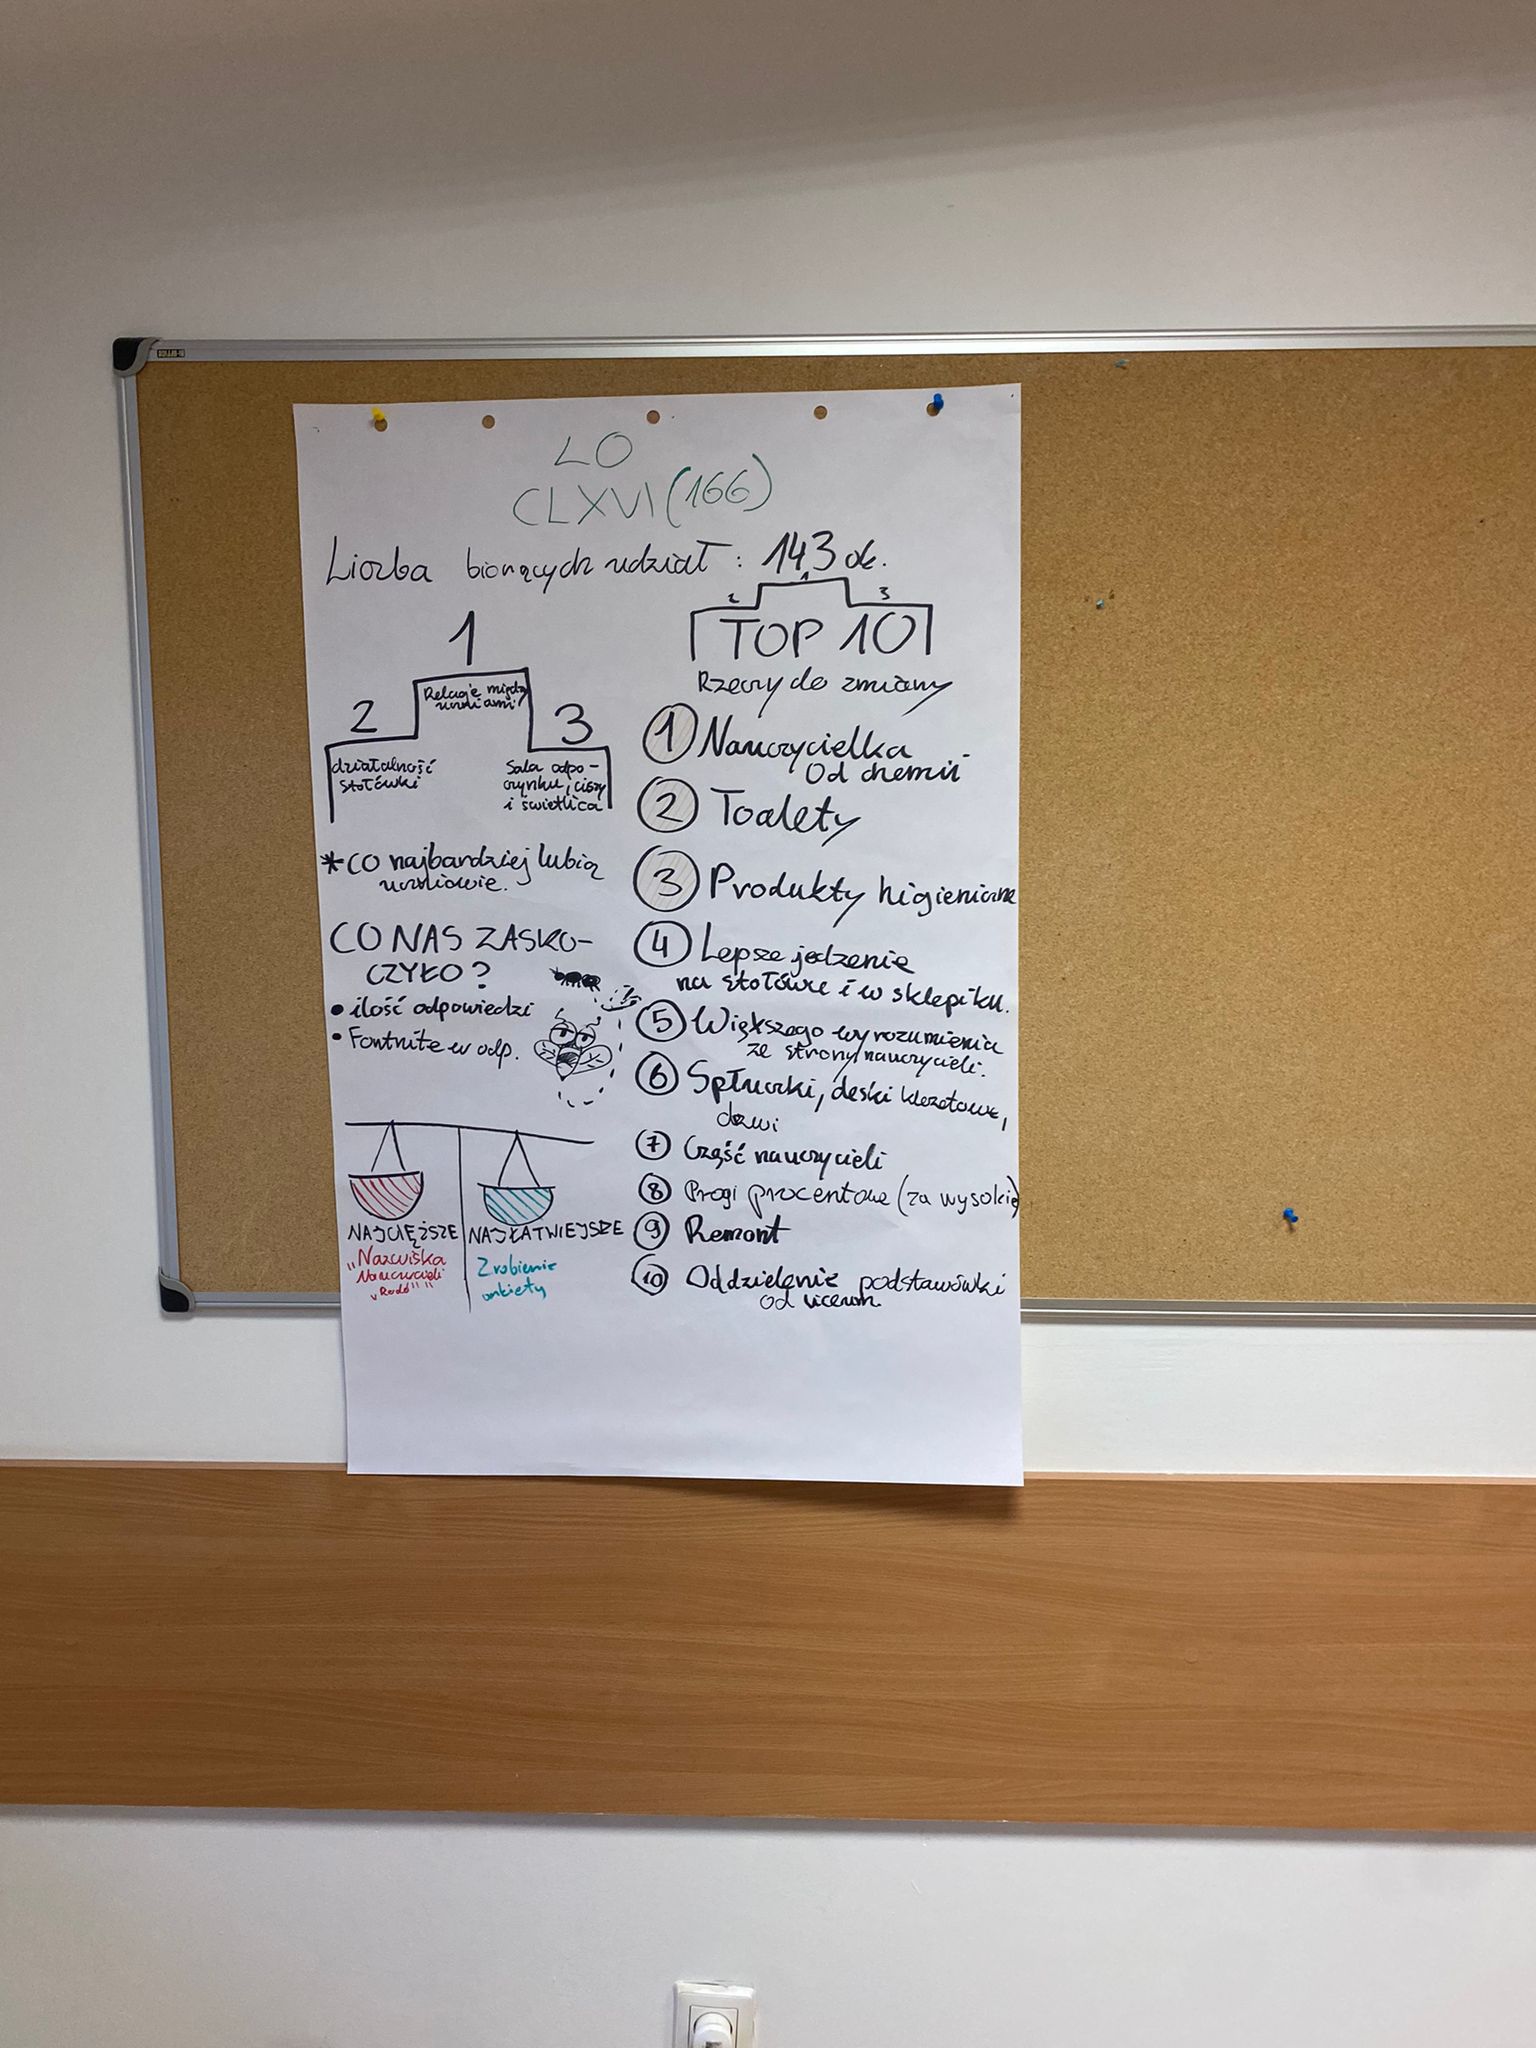 LO
CLXVI (166)
Liczba biorących udział : 143 ok.
1
Relacje między
uczniami
2
działalność
stołówki
3
Sala odpo-
czynku, ciszy
i świetlica
*CO najbardziej lubią
uczniowie.
CO NAS ZASKO-
CZYŁO?
• ilość odpowiedzi
• Fortnite w odp.
NAJCIĘŻSZE
"Nazwiska
Nauczycieli
"Rodo""
NAJŁATWIEJSZE
Zrobienie
ankiety
2 1 3
TOP 10
Rzeczy do zmiany
1 Nauczycielka
Od chemii
2 Toalety
3 Produkty higieniczne
4 Lepsze jedzenie
na stołówce i w sklepiku.
5 Większego wyrozumienia
ze strony nauczycieli.
6 Spłuczki, deski klozetowe,
drzwi
7 Część nauczycieli
8 Progi procentowe (za wysokie)
9 Remont
10 Oddzielenie podstawówki
od liceum.